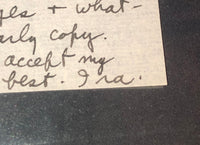 yes + what-
arly copy.
accept my
best. Ira.